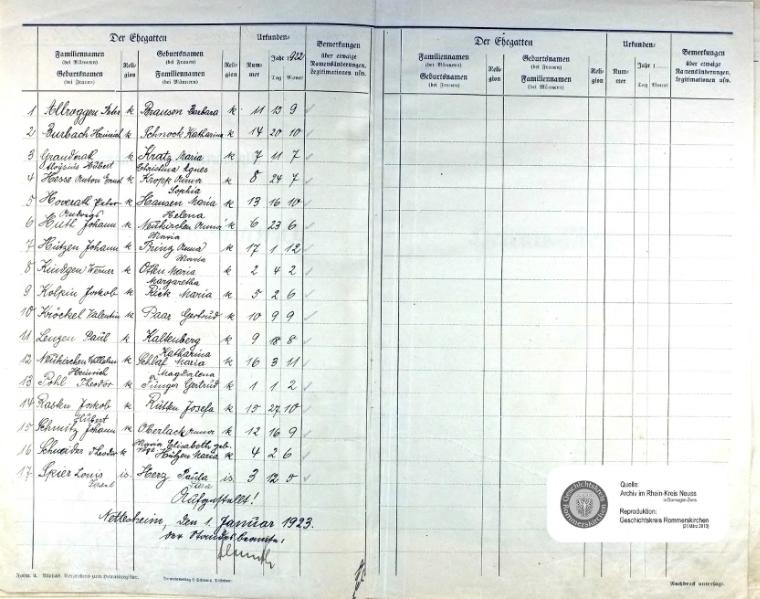 Der Ehegatten
Urkunden-
Bemerkungen
über etwaige
Namensänderungen,
Legitimationen usw.
Familiennamen
(bei Männern)
Geburtsnamen
(bei Frauen)
Reli-
gion
Geburtsnamen
(bei Frauen)
Familiennamen
(bei Männern)
Reli-
gion
Num-
mer
Jahr 1922
Tag Monat
1 Allroggen Peter k Brausen Barbara k 11 13 9
2 Burbach Heinrich k Schnock Katharina k 14 20 10
3 Granderath k Kratz Maria k 7 11 7
Aloysius Hubert Christina Agnes
4 Hesse Anton Ernst k Kropp Anna k 8 24 7
Sophia
5 Hoverath Peter k Hansen Maria k 13 16 10
Helena
6 Huth Johann k Neukirchen Anna k 6 23 6
Maria
7 Hützen Johann k Prinz Anna k 17 1 12
Maria
8 Kindgen Werner k Otten Maria k 2 4 2
Margaretha
9 Kolpin Jakob k Rick Maria k 5 2 6
10 Kröckel Valentin k Paar Gertrud k 10 9 9
11 Lenzen Paul k Kaltenberg k 9 18 8
Katharina
12 Neukirchen Wilhelm k Schlaf Maria k 16 3 11
Heinrich Magdalena
13 Pohl Theodor k Fünger Gertrud k 1 1 2
14 Rasten Jakob k Rütten Josefa k 15 27 10
Hubert
15 Schmitz Johann k Oberlack Anna k 12 16 9
Maria Elisabeth geb.
16 Schneider Theodor k Hützen Maria k 4 2 6
17 Speier Louis is. Herz Paula is. 3 12 5
Aufgestellt!
Nettesheim, den 1. Januar 1923.
Der Standesbeamte:
Der Ehegatten
Urkunden-
Bemerkungen
über etwaige
Namensänderungen,
Legitimationen usw.
Familiennamen
(bei Männern)
Geburtsnamen
(bei Frauen)
Reli-
gion
Geburtsnamen
(bei Frauen)
Familiennamen
(bei Männern)
Reli-
gion
Num-
mer
Jahr 1
Tag Monat
Geschichtskreis
Rommerskirchen
Quelle:
Archiv im Rhein-Kreis Neuss
in Dormagen-Zons
Reproduktion:
Geschichtskreis Rommerskirchen
Nachdruck untersagt.